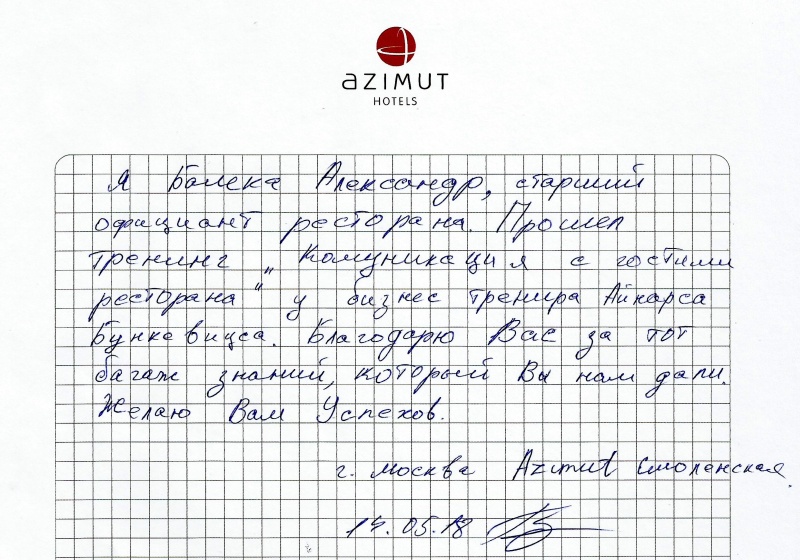 AZIMUT
HOTELS
Я Балека Александр, старший
официант ресторана. Прошел
тренинг „Комуникация с гостями
ресторана" у бизнес тренира Айнарса
Бункевицса. Благодарю Вас за тот
багаж знаний, который Вы нам дали.
Желаю Вам Успехов.
г. Москва Azimut Смоленская.
14.05.18